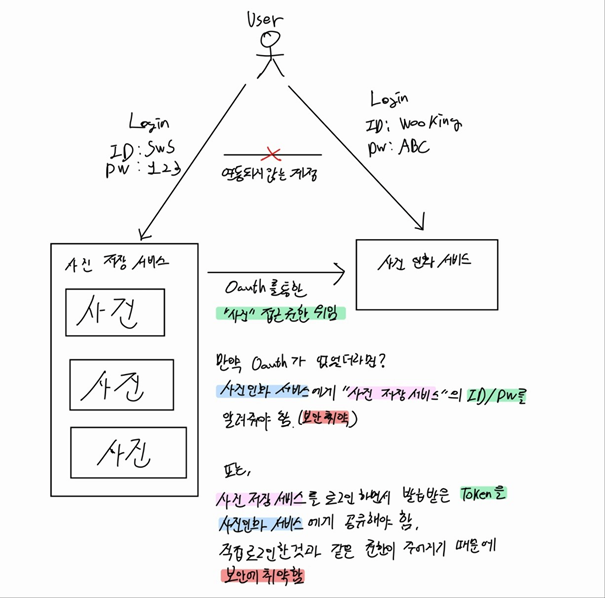 User
Login
ID: SWS
PW: 123
Login
ID: Wooking
PW: ABC
연동되지 않는 계정
사진 저장 서비스
사진
사진
사진
사진 인화 서비스
Oauth를 통한
"사진" 접근 권한 위임
만약 Oauth가 없었더라면?
사진인화 서비스에게 "사진 저장 서비스"의 ID/PW를
알려줘야 함. (보안 취약)
또는,
사진 저장 서비스를 로그인 하면서 발급받은 Token을
사진인화 서비스에게 공유해야 함,
직접 로그인한것과 같은 권한이 주어지기 때문에
보안에 취약함